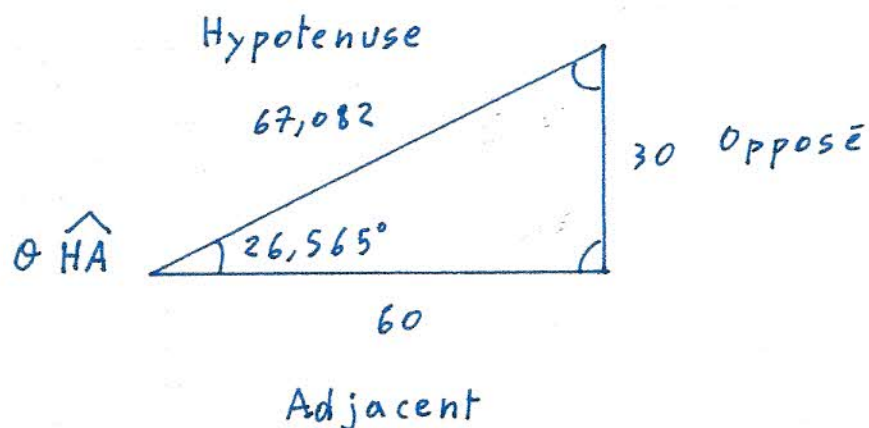 Hypotenuse
67,082
30 Opposé
θ HA 26,565°
60
Adjacent